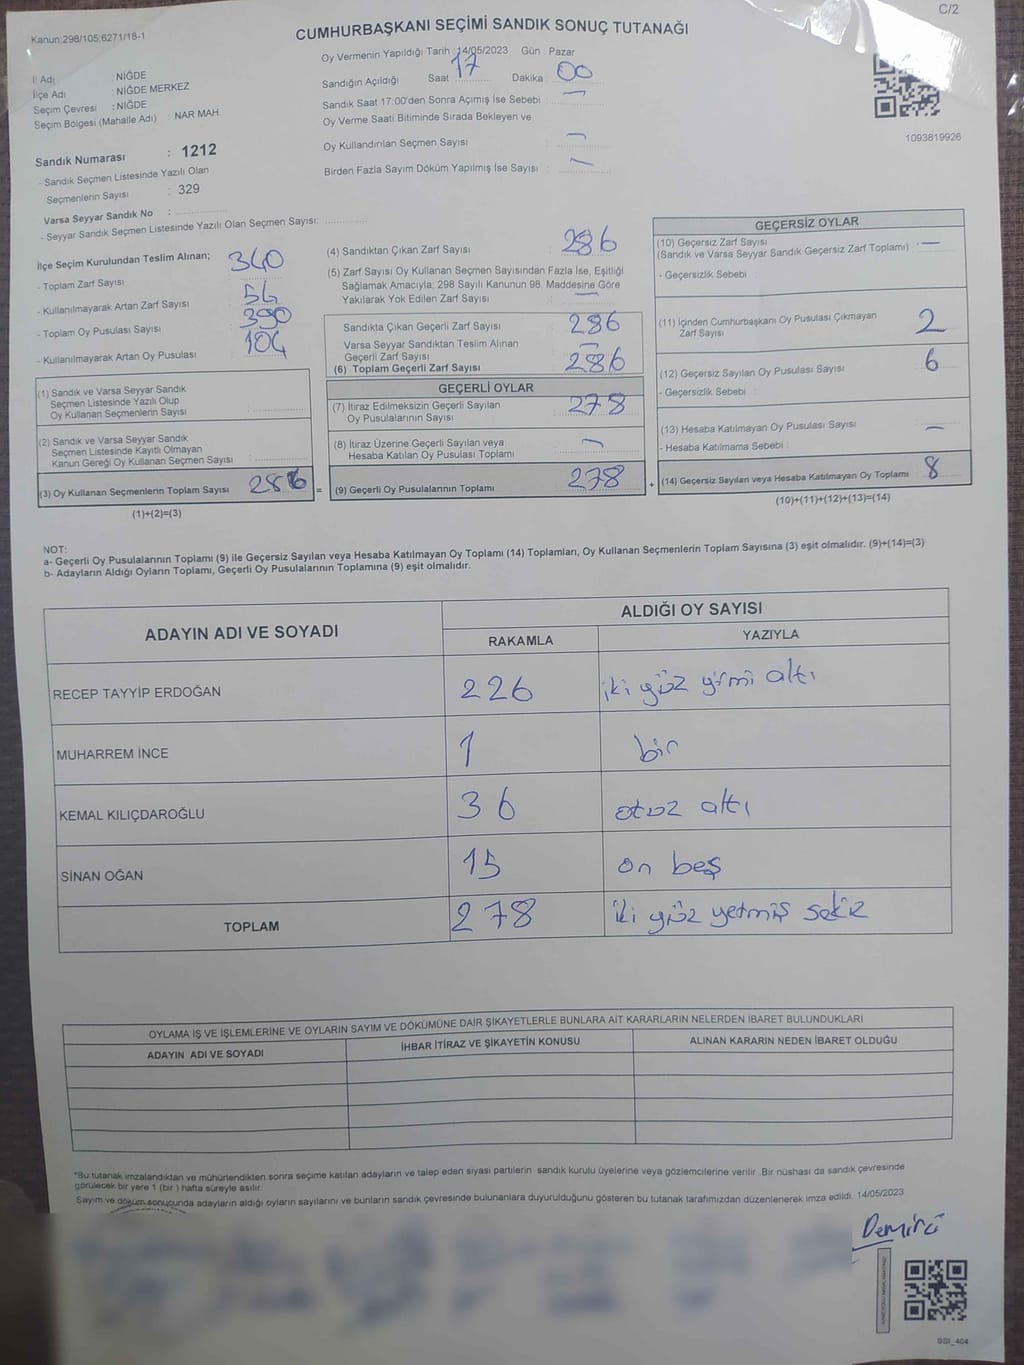 C/2
Kanun:298/105;6271/18-1
CUMHURBAŞKANI SEÇİMİ SANDIK SONUÇ TUTANAĞI
Oy Vermenin Yapıldığı Tarih :14/05/2023 Gün : Pazar
İl Adı : NİĞDE
İlçe Adı : NİĞDE MERKEZ
Seçim Çevresi : NİĞDE
Seçim Bölgesi (Mahalle Adı) : NAR MAH.
Sandığın Açıldığı Saat 17 Dakika 00
Sandık Saat 17:00'den Sonra Açımış İse Sebebi : —
Oy Verme Saati Bitiminde Sırada Bekleyen ve
Oy Kullandırılan Seçmen Sayısı : —
Birden Fazla Sayım Döküm Yapılmış İse Sayısı : —
1093819926
Sandık Numarası : 1212
- Sandık Seçmen Listesinde Yazılı Olan
Seçmenlerin Sayısı : 329
Varsa Seyyar Sandık No :
- Seyyar Sandık Seçmen Listesinde Yazılı Olan Seçmen Sayısı:
İlçe Seçim Kurulundan Teslim Alınan;
- Toplam Zarf Sayısı : 340
- Kullanılmayarak Artan Zarf Sayısı : 54
- Toplam Oy Pusulası Sayısı : 390
- Kullanılmayarak Artan Oy Pusulası : 104
(1) Sandık ve Varsa Seyyar Sandık
Seçmen Listesinde Yazılı Olup
Oy Kullanan Seçmenlerin Sayısı :
(2) Sandık ve Varsa Seyyar Sandık
Seçmen Listesinde Kayıtlı Olmayan
Kanun Gereği Oy Kullanan Seçmen Sayısı :
(3) Oy Kullanan Seçmenlerin Toplam Sayısı 286 =
(1)+(2)=(3)
(4) Sandıktan Çıkan Zarf Sayısı : 286
(5) Zarf Sayısı Oy Kullanan Seçmen Sayısından Fazla İse, Eşitliği
Sağlamak Amacıyla; 298 Sayılı Kanunun 98. Maddesine Göre
Yakılarak Yok Edilen Zarf Sayısı : —
Sandıkta Çıkan Geçerli Zarf Sayısı : 286
Varsa Seyyar Sandıktan Teslim Alınan
Geçerli Zarf Sayısı : —
(6) Toplam Geçerli Zarf Sayısı : 286
GEÇERLİ OYLAR
(7) İtiraz Edilmeksizin Geçerli Sayılan
Oy Pusulalarının Sayısı : 278
(8) İtiraz Üzerine Geçerli Sayılan veya
Hesaba Katılan Oy Pusulası Toplamı : —
(9) Geçerli Oy Pusulalarının Toplamı : 278 +
GEÇERSİZ OYLAR
(10) Geçersiz Zarf Sayısı
(Sandık ve Varsa Seyyar Sandık Geçersiz Zarf Toplamı) : —
- Geçersizlik Sebebi :
(11) İçinden Cumhurbaşkanı Oy Pusulası Çıkmayan
Zarf Sayısı : 2
(12) Geçersiz Sayılan Oy Pusulası Sayısı : 6
- Geçersizlik Sebebi :
(13) Hesaba Katılmayan Oy Pusulası Sayısı : —
- Hesaba Katılmama Sebebi :
(14) Geçersiz Sayılan veya Hesaba Katılmayan Oy Toplamı : 8
(10)+(11)+(12)+(13)=(14)
NOT:
a- Geçerli Oy Pusulalarının Toplamı (9) ile Geçersiz Sayılan veya Hesaba Katılmayan Oy Toplamı (14) Toplamları, Oy Kullanan Seçmenlerin Toplam Sayısına (3) eşit olmalıdır. (9)+(14)=(3)
b- Adayların Aldığı Oyların Toplamı, Geçerli Oy Pusulalarının Toplamına (9) eşit olmalıdır.
ADAYIN ADI VE SOYADI ALDIĞI OY SAYISI
RAKAMLA YAZIYLA
RECEP TAYYİP ERDOĞAN 226 iki yüz yirmi altı
MUHARREM İNCE 1 bir
KEMAL KILIÇDAROĞLU 36 otuz altı
SİNAN OĞAN 15 on beş
TOPLAM 278 iki yüz yetmiş sekiz
OYLAMA İŞ VE İŞLEMLERİNE VE OYLARIN SAYIM VE DÖKÜMÜNE DAİR ŞİKAYETLERLE BUNLARA AİT KARARLARIN NELERDEN İBARET BULUNDUKLARI
ADAYIN ADI VE SOYADI İHBAR İTİRAZ VE ŞİKAYETİN KONUSU ALINAN KARARIN NEDEN İBARET OLDUĞU
*Bu tutanak imzalandıktan ve mühürlendikten sonra seçime katılan adayların ve talep eden siyasi partilerin sandık kurulu üyelerine veya gözlemcilerine verilir. Bir nüshası da sandık çevresinde
görülecek bir yere 1 (bir ) hafta süreyle asılır.
Sayım ve döküm sonucunda adayların aldığı oyların sayılarını ve bunların sandık çevresinde bulunanlara duyurulduğunu gösteren bu tutanak tarafımızdan düzenlenerek imza edildi. 14/05/2023
SSI_404